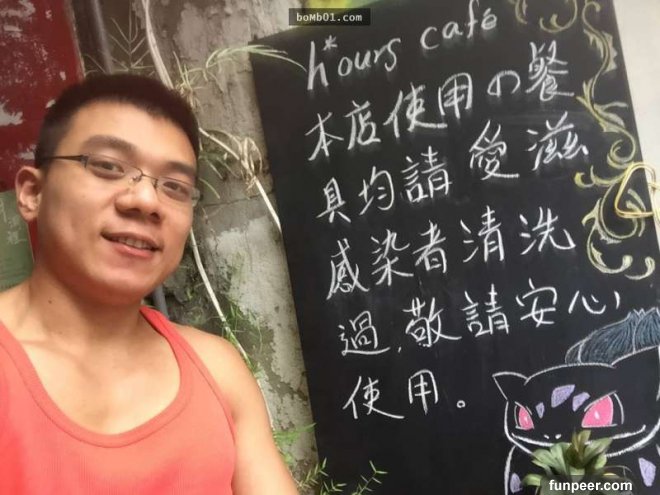 boMb01.com
h*ours café
本店使用の餐
具均請愛滋
感染者清洗
過,敬請安心
使用。
funpeer.com